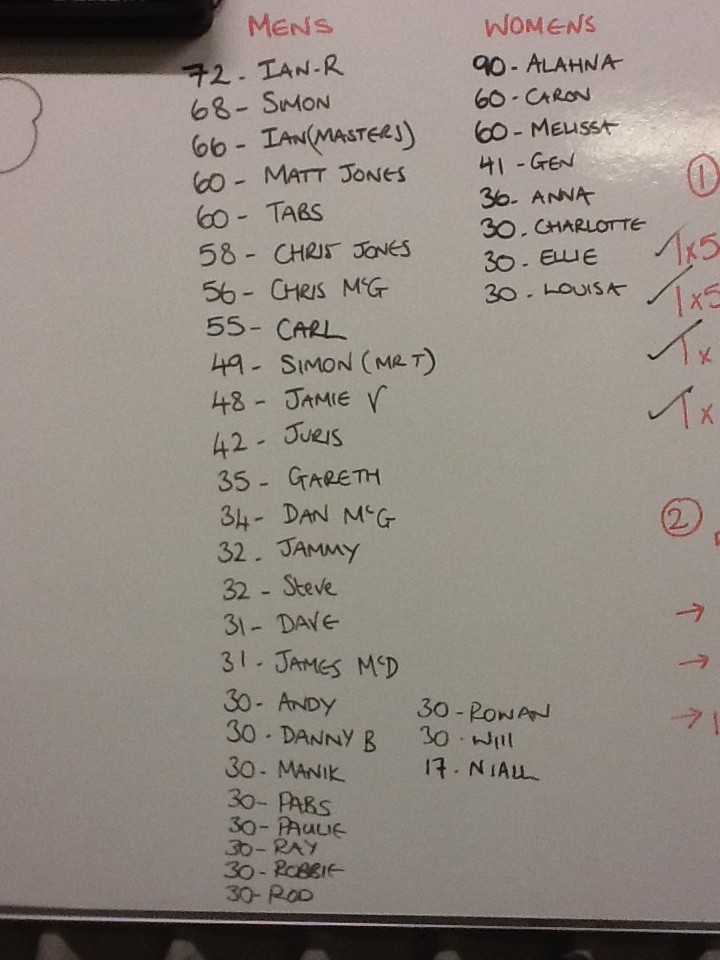 MENS
72 - IAN-R
68 - SIMON
66 - IAN (MASTERS)
60 - MATT JONES
60 - TABS
58 - CHRIS JONES
56 - CHRIS McG
55 - CARL
49 - SIMON (MR T)
48 - JAMIE V
42 - JURIS
35 - GARETH
34 - DAN McG
32 - JAMMY
32 - Steve
31 - DAVE
31 - JAMES McD
30 - ANDY
30 - DANNY B
30 - MANIK
30 - PABS
30 - PAULIE
30 - RAY
30 - ROBBIE
30 - ROD
30 - ROWAN
30 - Will
17 - NIALL
WOMENS
90 - ALAHNA
60 - CARON
60 - MELISSA
41 - GEN
36 - ANNA
30 - CHARLOTTE
30 - ELLIE
30 - LOUISA
①
1x5
1x5
1x
1x
②
→
→
→